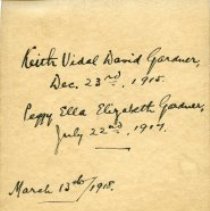 Keith Vidal David Gardner,
Dec. 23rd, 1915.
Peggy Ella Elizabeth Gardner,
July 22nd, 1917.
March 13th/1918.